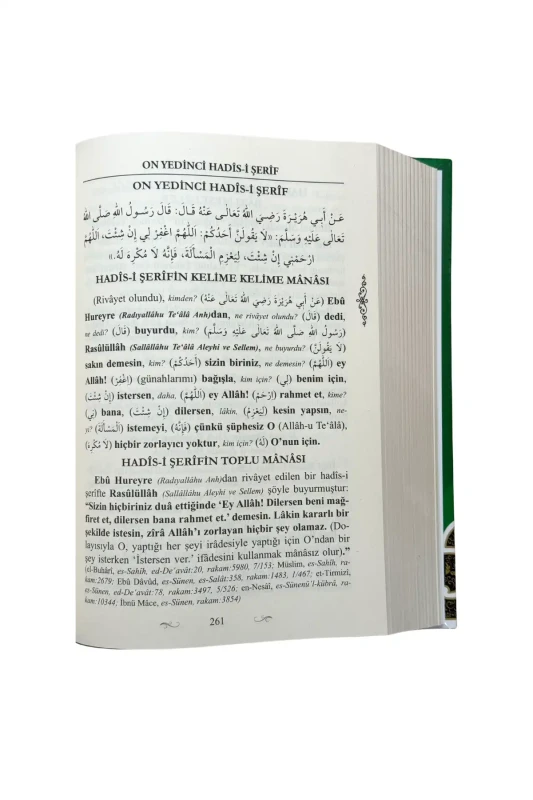 ON YEDİNCİ HADÎS-İ ŞERÎF
ON YEDİNCİ HADÎS-İ ŞERÎF
عَنْ أَبِي هُرَيْرَةَ رَضِيَ اللهُ تَعَالَى عَنْهُ قَالَ: قَالَ رَسُولُ اللهِ صَلَّى اللهُ
تَعَالَى عَلَيْهِ وَسَلَّمَ: «لَا يَقُولَنَّ أَحَدُكُمْ: اَللّٰهُمَّ اغْفِرْ لِي إِنْ شِئْتَ، اَللّٰهُمَّ
ارْحَمْنِي إِنْ شِئْتَ، لِيَعْزِمِ الْمَسْأَلَةَ، فَإِنَّهُ لَا مُكْرِهَ لَهُ.»
HADÎS-İ ŞERÎFİN KELİME KELİME MÂNÂSI
(Rivâyet olundu), kimden? (عَنْ أَبِي هُرَيْرَةَ رَضِيَ اللهُ تَعَالَى عَنْهُ) Ebû
Hureyre (Radıyallâhu Te‘âlâ Anh)dan, ne rivâyet olundu? (قَالَ) dedi,
ne dedi? (قَالَ) buyurdu, kim? (رَسُولُ اللهِ صَلَّى اللهُ تَعَالَى عَلَيْهِ وَسَلَّمَ)
Rasûlüllâh (Sallâllâhu Te‘âlâ Aleyhi ve Sellem), ne buyurdu? (لَا يَقُولَنَّ)
sakın demesin, kim? (أَحَدُكُمْ) sizin biriniz, ne demesin? (اَللّٰهُمَّ) ey
Allâh! (اغْفِرْ) (günahlarımı) bağışla, kim için? (لِي) benim için,
(إِنْ شِئْتَ) istersen, daha, (اَللّٰهُمَّ) ey Allâh! (ارْحَمْ) rahmet et, kime?
(نِي) bana, (إِنْ شِئْتَ) dilersen, lâkin, (لِيَعْزِمِ) kesin yapsın, ne-
yi? (الْمَسْأَلَةَ) istemeyi, (فَإِنَّهُ) çünkü şüphesiz O (Allâh-u Te‘âlâ),
(لَا مُكْرِهَ) hiçbir zorlayıcı yoktur, kim için? (لَهُ) O’nun için.
HADÎS-İ ŞERÎFİN TOPLU MÂNÂSI
Ebû Hureyre (Radıyallâhu Anh)dan rivâyet edilen bir hadîs-i
şerîfte Rasûlüllâh (Sallâllâhu Aleyhi ve Sellem) şöyle buyurmuştur:
“Sizin hiçbiriniz duâ ettiğinde ‘Ey Allâh! Dilersen beni mağ-
firet et, dilersen bana rahmet et.’ demesin. Lâkin kararlı bir
şekilde istesin, zîrâ Allâh’ı zorlayan hiçbir şey olamaz. (Do-
layısıyla O, yaptığı her şeyi irâdesiyle yaptığı için O’ndan bir
şey isterken ‘İstersen ver.’ ifadesini kullanmak mânâsız olur).”
(el-Buhârî, es-Sahîh, ed-De‘avât:20, rakam:5980, 7/153; Müslim, es-Sahîh, ra-
kam:2679; Ebû Dâvûd, es-Sünen, es-Salât:358, rakam:1483, 1/467; et-Tirmizî,
es-Sünen, ed-De‘avât:78, rakam:3497, 5/526; en-Nesâî, es-Sünenü’l-kübrâ, ra-
kam:10344; İbnü Mâce, es-Sünen, rakam:3854)
261